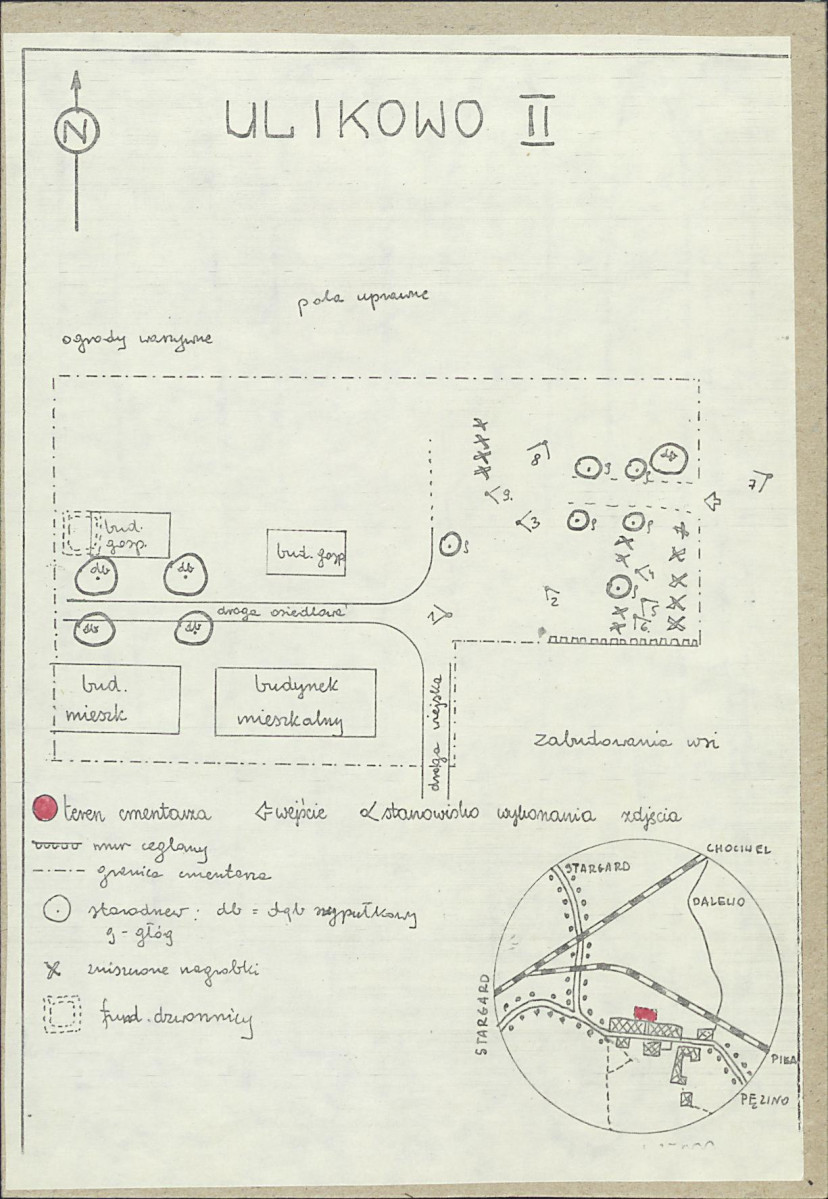 N
ULIKOWO II
pola uprawne
ogrody warzywne
8
g
g
7
9.
3
g
g
bud.
gosp.
bud. gosp
g
db
db
4
2
5
6.
droga osiedlowa
1
db
db
bud.
mieszk
budynek
mieszkalny
droga wiejska
zabudowania wsi
teren cmentarza
wejście
stanowisko wykonania zdjęcia
mur ceglany
granica cmentarza
starodrzew: db = dąb szypułkowy
g - głóg
zniszczone nagrobki
fund. dzwonnicy
CHOCIWEL
STARGARD
DALEWO
STARGARD
PIŁA
PĘZINO